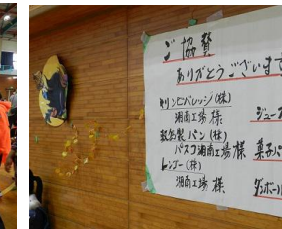 ご協賛
ありがとうございます
キリンビバレッジ(株)
湘南工場 様 ジュー
敷島製パン(株)
パスコ湘南工場 様 菓子パ
レンゴー(株)
湘南工場 様 ダンボール